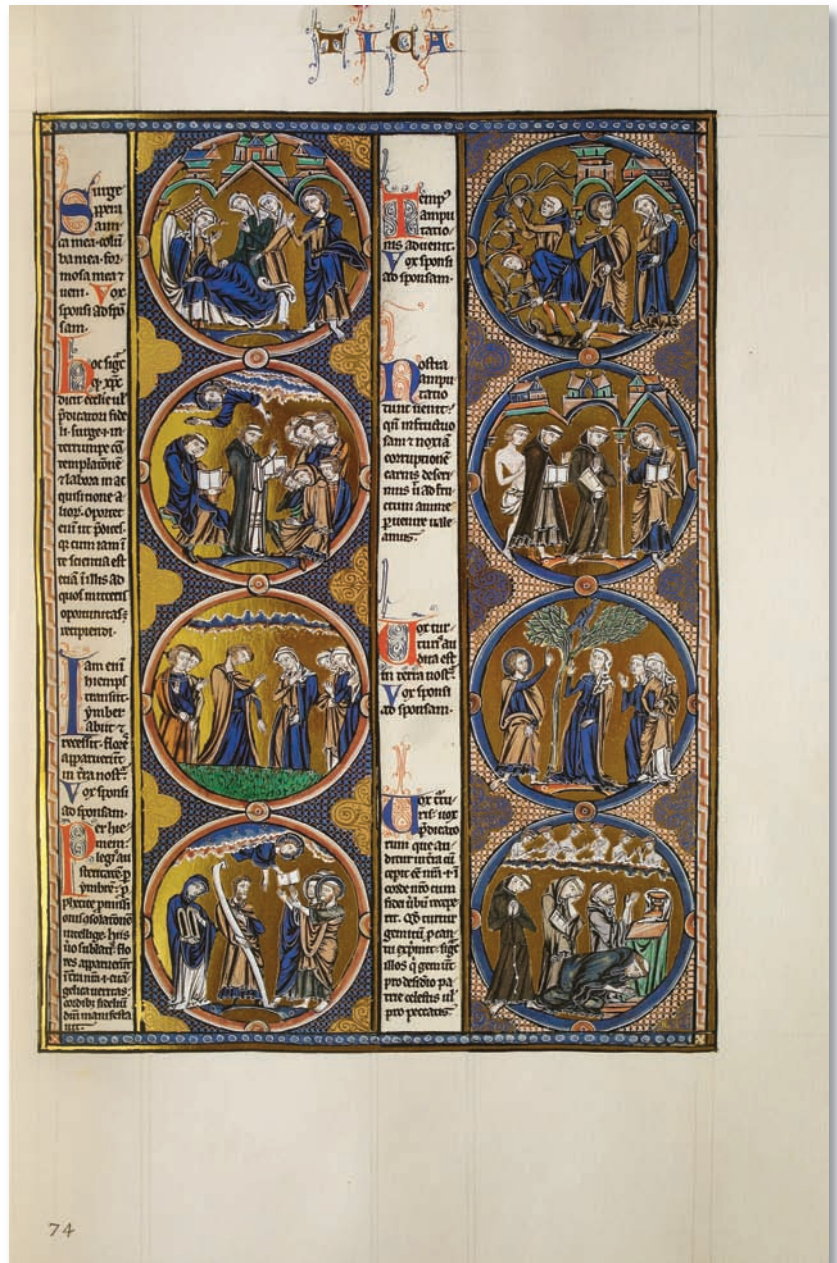 TICA
Surge
ppera
ami
ca mea colū
ba mea for
mosa mea ⁊
ueni. Vox
sponsi ad spō
sam.
hoc sigͨ
dicit ecclie ul
p̄dicatori fide
li. surge ⁊ in
terrumpe cō
templatōnē
⁊ labora in ac
quisitione a
lioꝝ. oportet
cum iam ī
te scientia est
etiā ī illis ad
quos mitteris
oportunitas
recipiendi.
Iam eni
hiemps
transiit.
ymber
abiit ⁊
recessit. flores
apparuerūt
in t̄ra nost̄.
Vox sponsi
ad sponsam.
Per hie
mem
legis au
steritatē. p
ymbrē. p
intellige. hiis
u̓o sublatis flo
res apparuerūt
gelica ueritas
cordibꝫ fideliū
Tempꝰ
ampu
tatio
nis aduenit.
Vox sponsi
ad sponsam.
Nostra
ampu
tatio
tunc uenit.
qn̄ infructuo
sam ⁊ noxiā
corruptionē
carnis deseri
mus ū ad fru
ctum anime
puenire uale
amus.
Vox tur
turis au
dita est
in terra nost̄.
Vox sponsi
ad sponsam.
Vox tur
turis. uox
p̄dicato
rum que au
ditur
corde nō cum
fidei ubū recepe
rit. Qꝫ turtur
gemitū p can
tu exp̄mit. sigͨ
illos q̓ gemūt
pro desid̓io pa
trie celestis ul̓
pro peccatis.
74